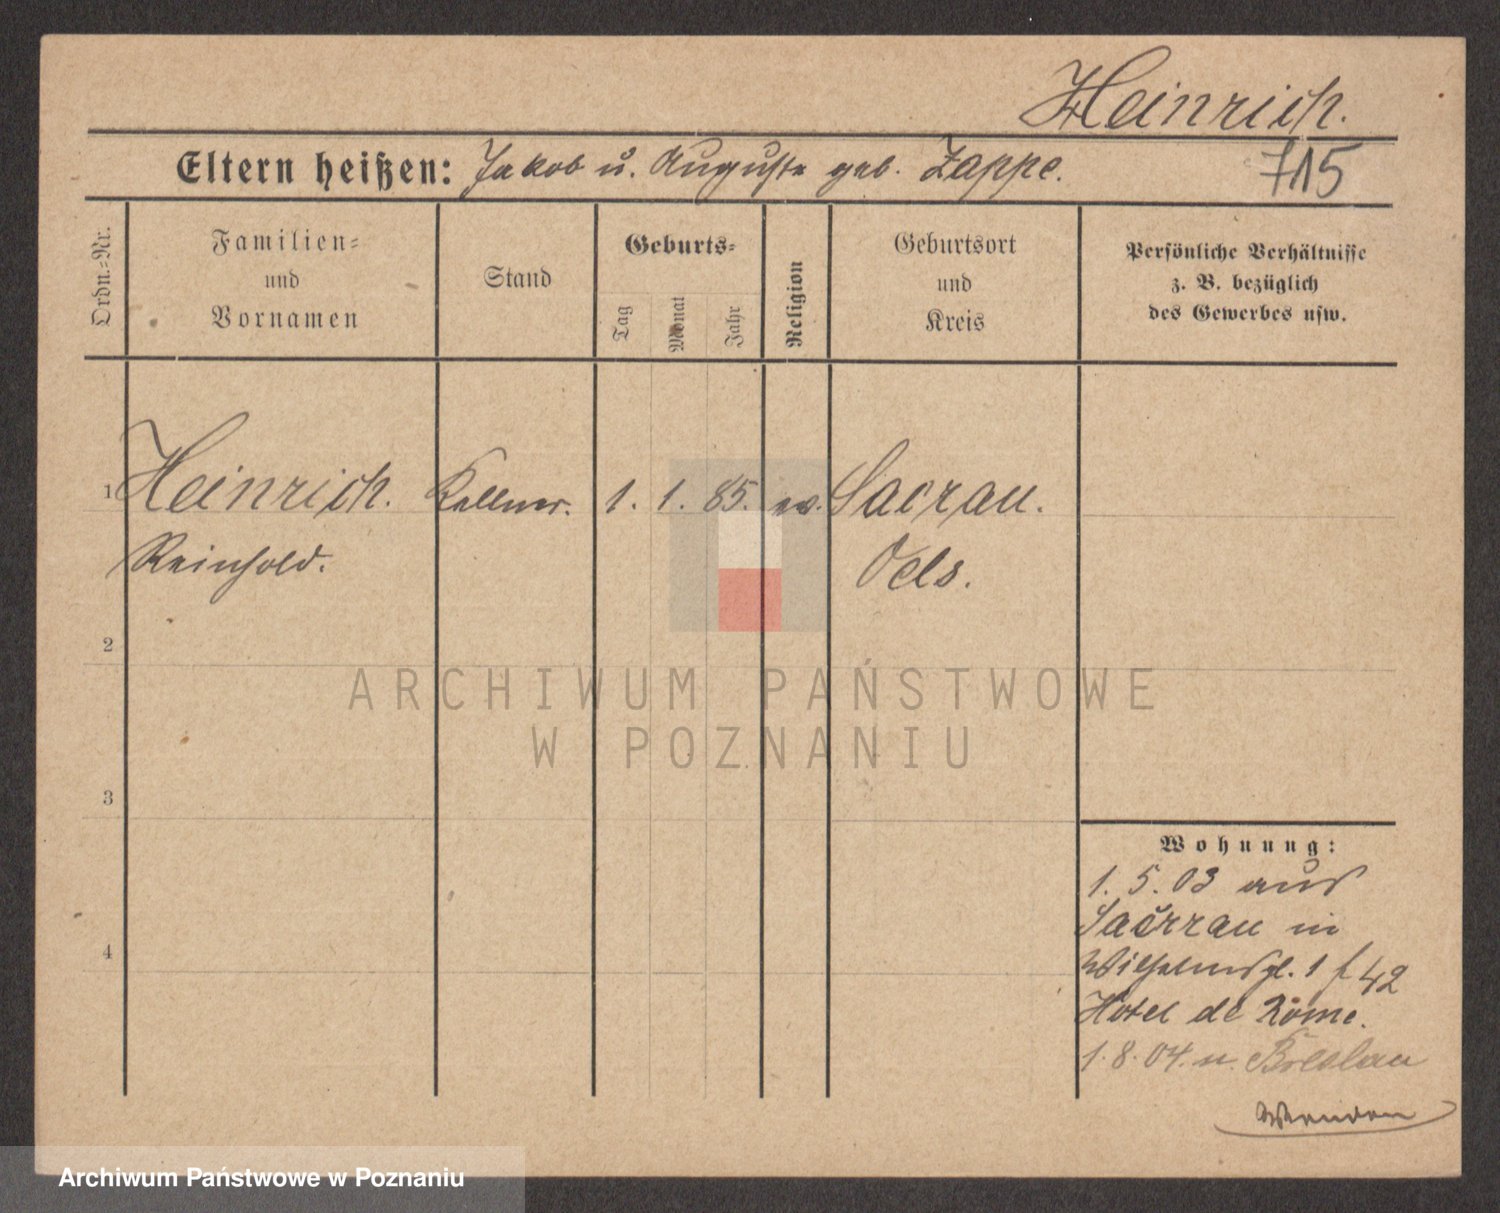 Heinrich.
Eltern heißen: Jakob u. Auguste geb. Zappe.
715
Ordn.-Nr.
Familien-
und
Vornamen
Stand
Geburts-
Tag
Monat
Jahr
Religion
Geburtsort
und
Kreis
Persönliche Verhältnisse
z. B. bezüglich
des Gewerbes usw.
1 Heinrich. Kellner. 1. 1. 85. ev. Sacrau.
Reinhold. Oels.
2
ARCHIWUM PAŃSTWOWE
W POZNANIU
3
Wohnung:
1. 5. 03 aus
Sacrau in
4
Wilhelmspl. 1 f 42
Hotel de Rome.
1. 8. 04. n. Breslau
Wenden
Archiwum Państwowe w Poznaniu